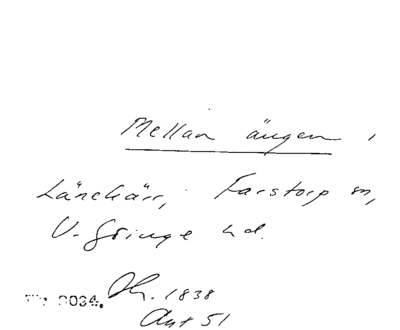 Mellan ängen,
Länehärr, Farstorp sn,
V. Göinge hd.
2034. 1838
Akt 51